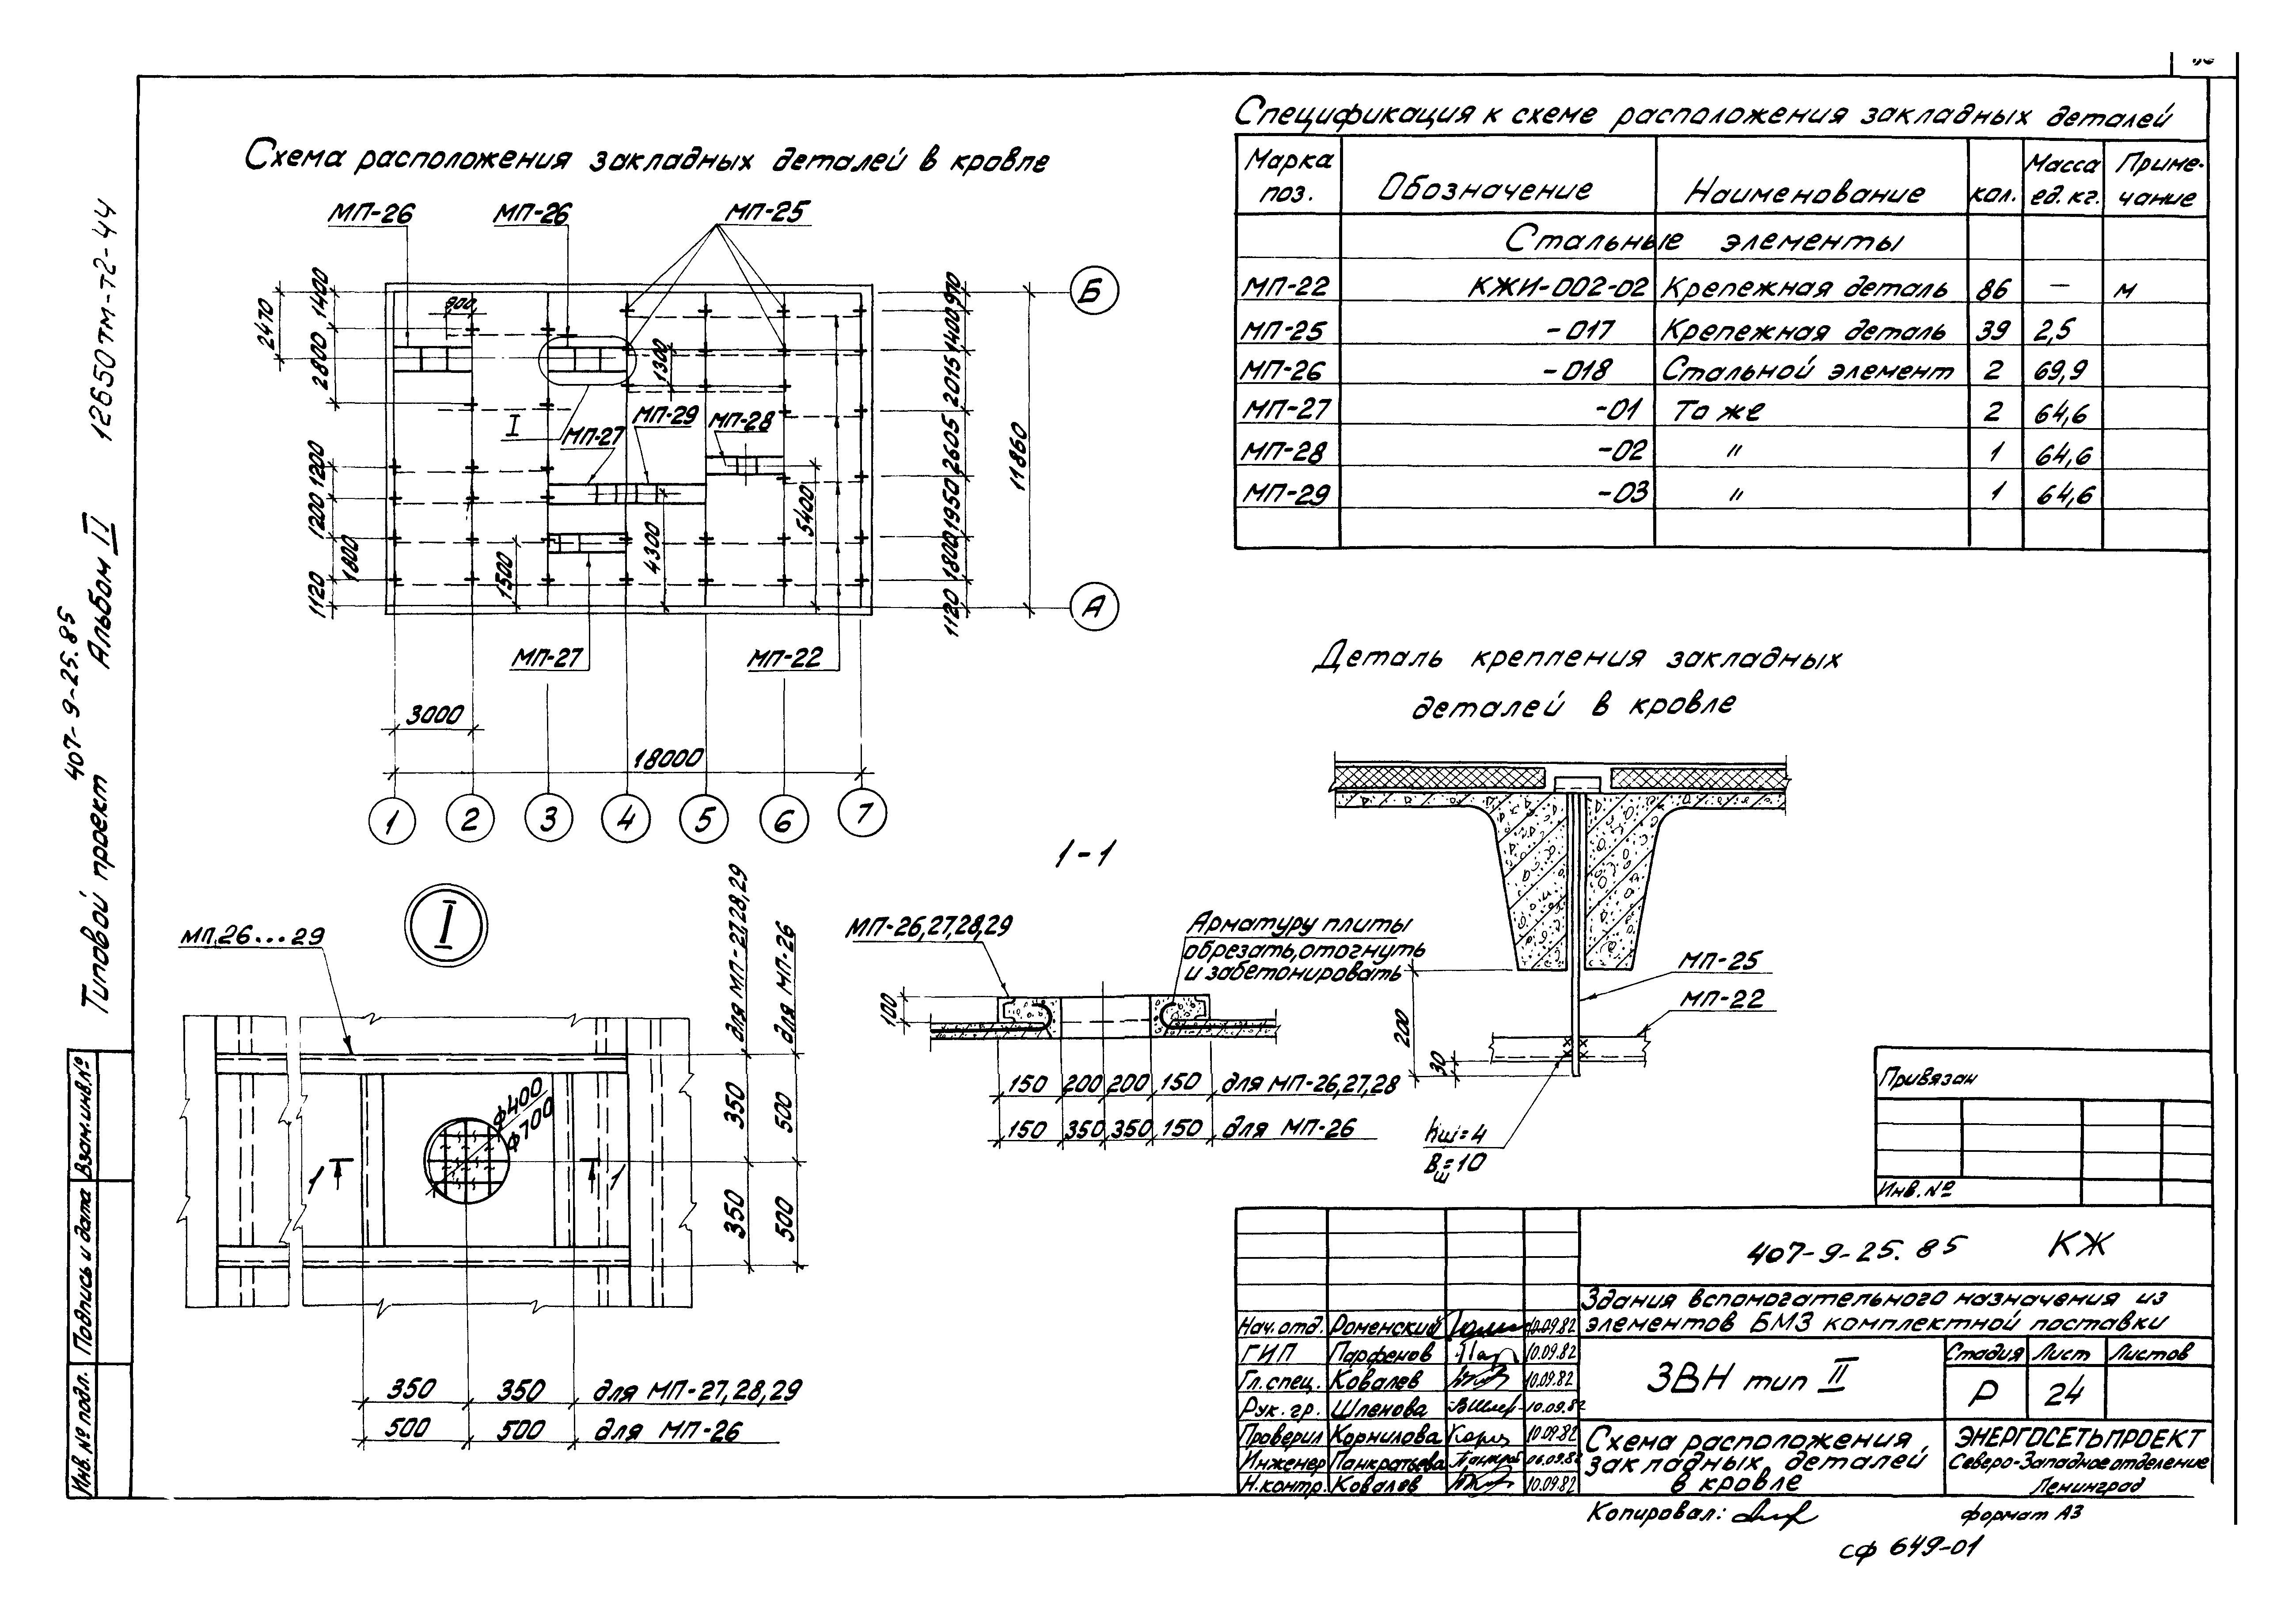 Схема расположения закладных деталей в кровле
МП-26
МП-26
МП-25
2470
1400
2800
1200
1200
1800
1120
900
1300
I
МП-27
МП-29
МП-28
1500
4300
5400
МП-27
МП-22
970
1400
2015
2605
1950
1800
1120
11860
Б
А
3000
18000
1
2
3
4
5
6
7
Спецификация к схеме расположения закладных деталей
Марка поз.
Обозначение
Наименование
кол.
Масса ед. кг.
Приме-чание
Стальные элементы
МП-22 КЖИ-002-02 Крепежная деталь 86 — м
МП-25 -017 Крепежная деталь 39 2,5
МП-26 -018 Стальной элемент 2 69,9
МП-27 -01 То же 2 64,6
МП-28 -02 " 1 64,6
МП-29 -03 " 1 64,6
Деталь крепления закладных
деталей в кровле
МП-25
МП-22
200
30
hш=4
Вш=10
I
МП.26...29
ф400
ф700
1
1
350
350
для МП-27,28,29
500
500
для МП-26
350 350 для МП-27,28,29
500 500 для МП-26
1-1
МП-26,27,28,29
Арматуру плиты
обрезать, отогнуть
и забетонировать
100
150 200 200 150 для МП-26,27,28
150 350 350 150 для МП-26
Привязан
Инв. №
407-9-25.85 КЖ
Здания вспомогательного назначения из
элементов БМЗ комплектной поставки
ЗВН тип II
Стадия Лист Листов
Р 24
Схема расположения
закладных деталей
в кровле
ЭНЕРГОСЕТЬПРОЕКТ
Северо-Западное отделение
Ленинград
Нач. отд. Роменский 10.09.82
ГИП Парфенов 10.09.82
Гл. спец. Ковалев 10.09.82
Рук. гр. Шленова 10.09.82
Проверил Корнилова 10.09.82
Инженер Панкратьева 06.09.82
Н. контр. Ковалев 10.09.82
Копировал:
формат А3
сф 649-01
Типовой проект 407-9-25.85 Альбом II 12650тм-т2-44
Инв. № подл. Подпись и дата Взам.инв.№